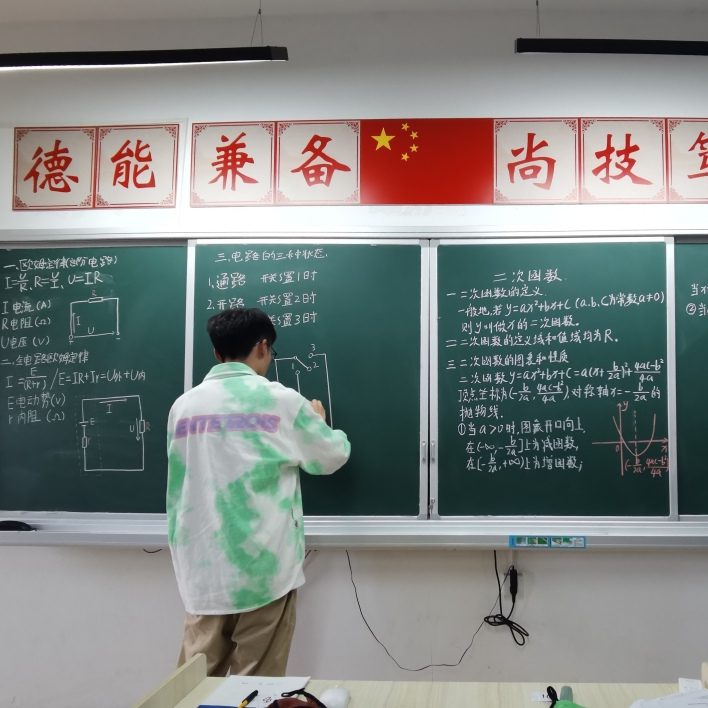 德能 兼备 尚技
一、欧姆定律(部分电路)
I=U/R, R=U/I, U=IR
I 电流 (A)
R 电阻 (Ω)
U 电压 (V)
E
I
U
二、全电路欧姆定律
I=E/(R+r) / E=IR+Ir=U外+U内
E 电动势 (V)
r 内阻 (Ω)
I
E
r
U
R
三、电路的三种状态.
1.通路 开关S置1时
2.开路 开关S置2时
关S置3时
1
2
3
二次函数
一 二次函数的定义
一般地,若 y=ax²+bx+c (a.b.c为常数a≠0)
则y叫做x的二次函数.
二 二次函数的定义域和值域均为R.
三 二次函数的图象和性质
二次函数 y=ax²+bx+c=a(x+b/2a)²+4ac-b²/4a
顶点坐标为(-b/2a, 4ac-b²/4a) 对称轴x=-b/2a的
抛物线.
①当a>0时,图象开口向上,
在(-∞, -b/2a]上为减函数,
在[-b/2a, +∞)上为增函数;
y
0
x
(-b/2a, 4ac-b²/4a)
当
②当